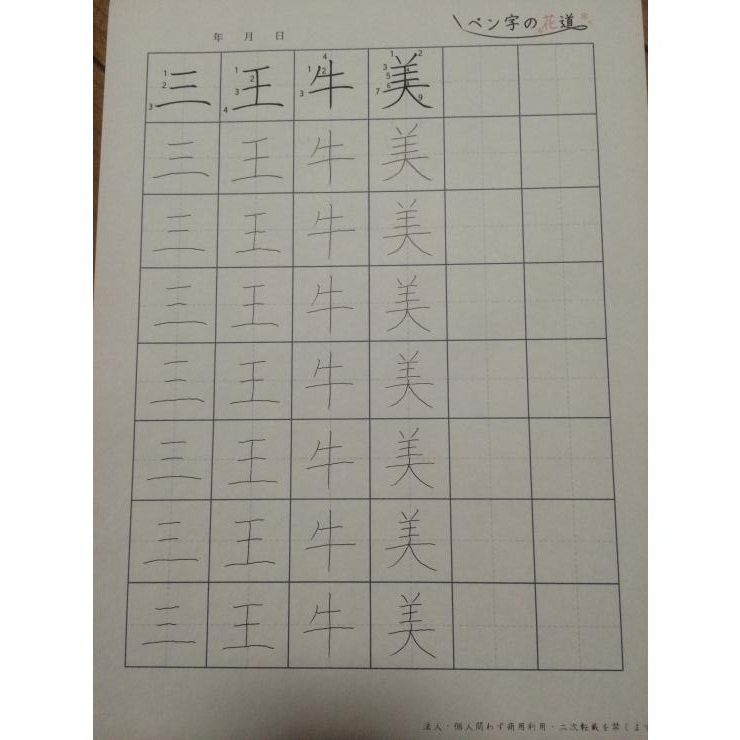 ペン字の花道
年 月 日
三 王 牛 美
三 王 牛 美
三 王 牛 美
三 王 牛 美
三 王 牛 美
三 王 牛 美
三 王 牛 美
三 王 牛 美
法人・個人問わず商用利用・二次転載を禁じます